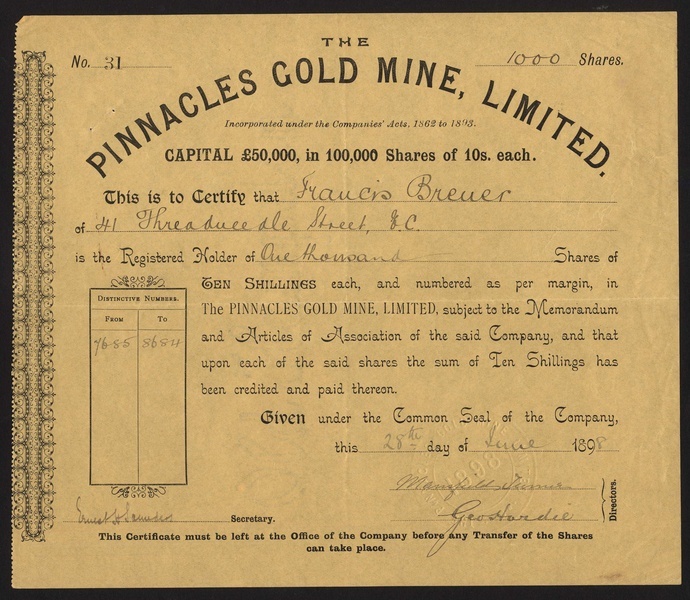 THE
No. 31
1000 Shares.
PINNACLES GOLD MINE, LIMITED.
Incorporated under the Companies' Acts, 1862 to 1893.
CAPITAL £50,000, in 100,000 Shares of 10s. each.
This is to Certify that Francis Breuer
of 41 Threadneedle Street, E.C.
is the Registered Holder of One thousand Shares of
TEN SHILLINGS each, and numbered as per margin, in
The PINNACLES GOLD MINE, LIMITED, subject to the Memorandum
and Articles of Association of the said Company, and that
upon each of the said shares the sum of Ten Shillings has
been credited and paid thereon.
DISTINCTIVE NUMBERS.
FROM TO
7685 8684
Given under the Common Seal of the Company,
this 28th day of June 1898
Geo Hardie
Directors.
Ernest H Saunders
Secretary.
This Certificate must be left at the Office of the Company before any Transfer of the Shares
can take place.